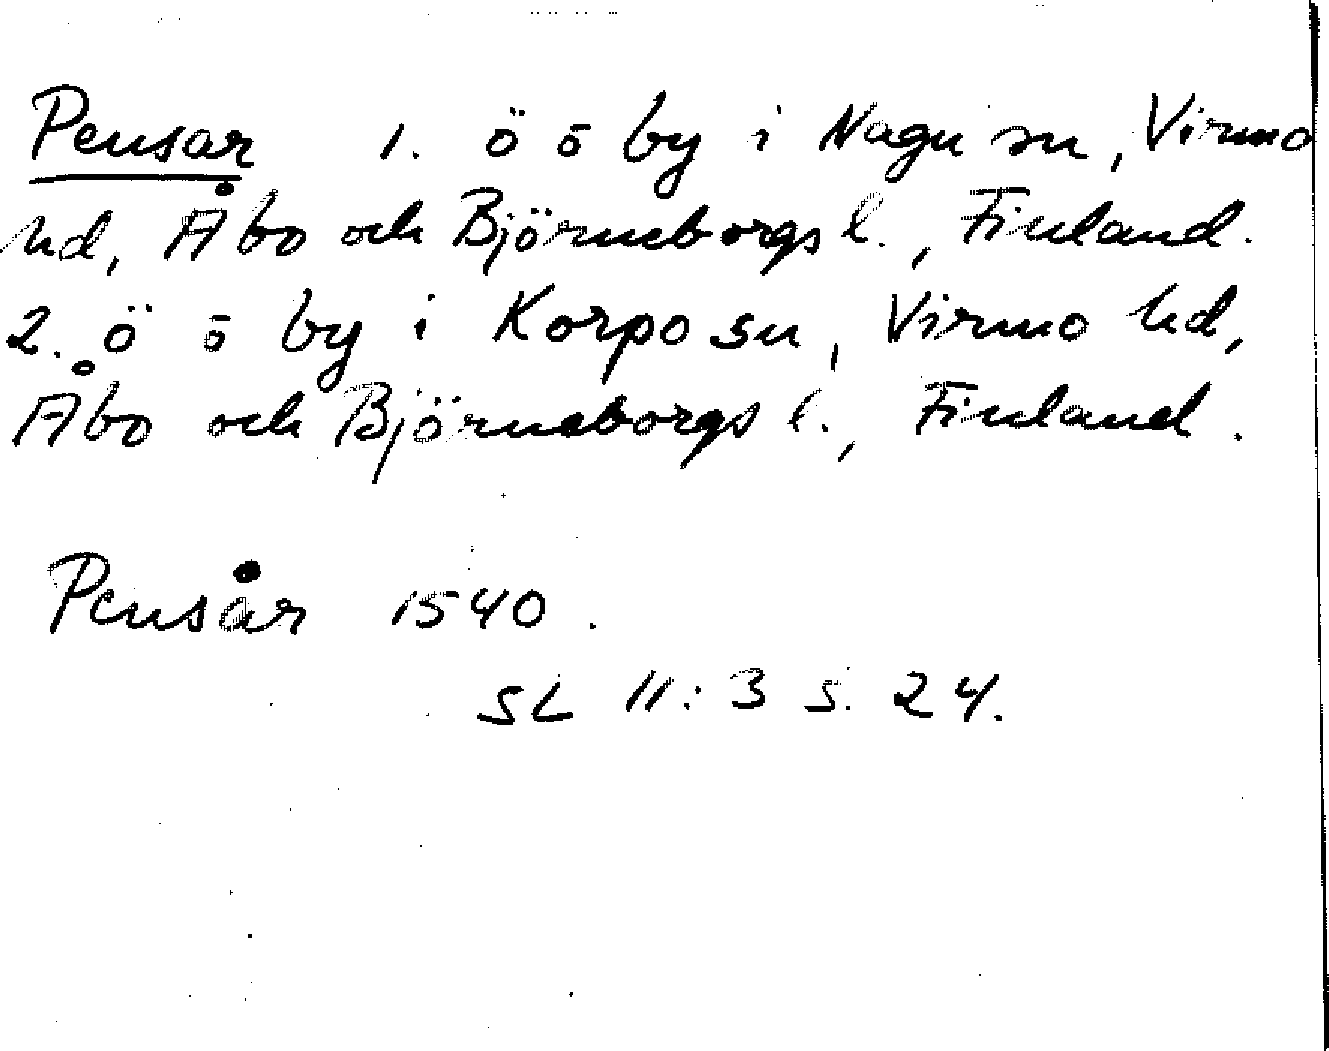 Pensar 1. ö o by i Nagu sn, Virmo
hd, Åbo och Björneborgs l., Finland.
2. ö o by i Korpo sn, Virmo hd,
Åbo och Björneborgs l., Finland.
Pensår 1540.
SL 11:3 s. 24.